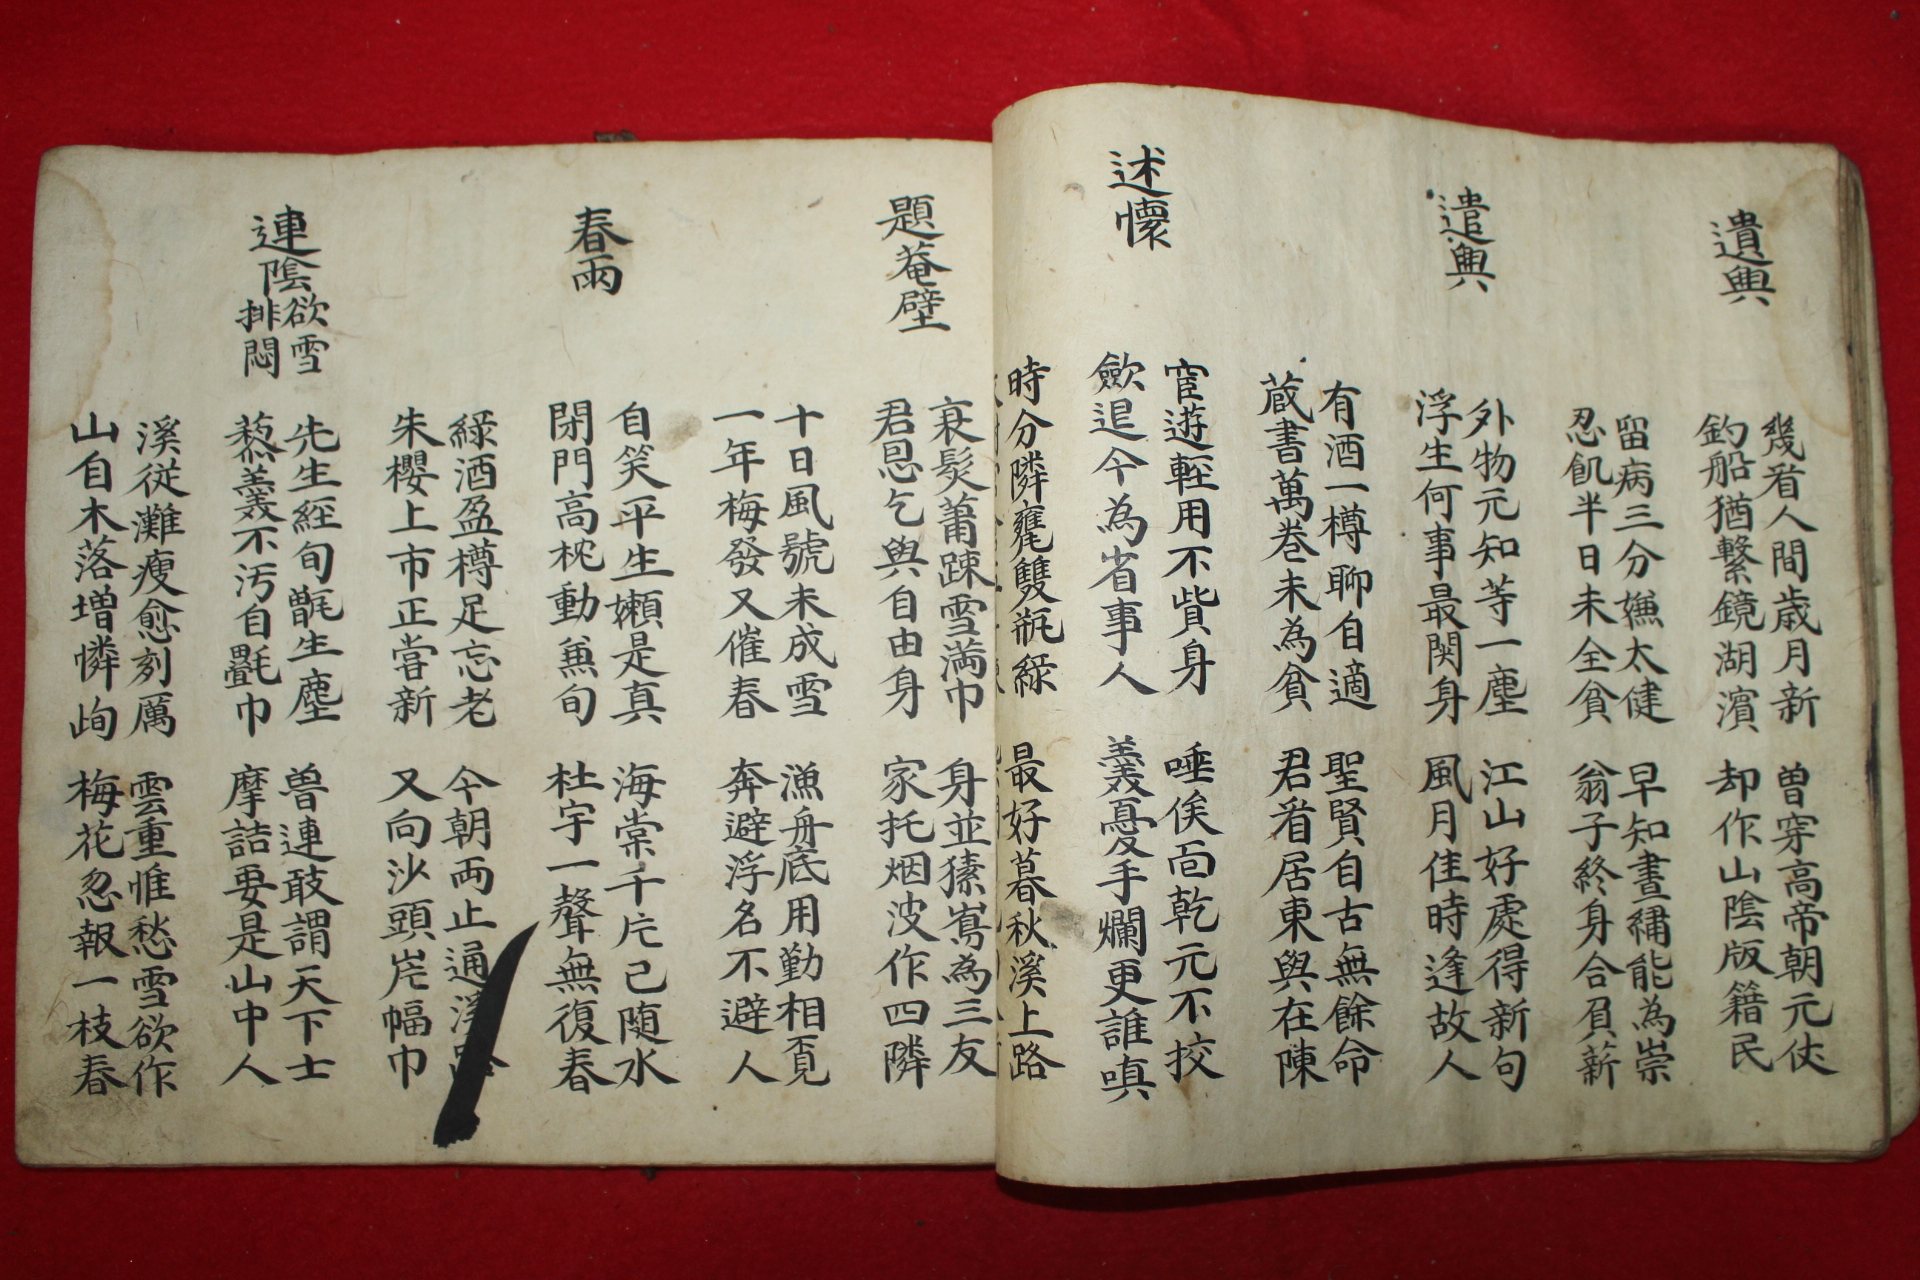 遣興
幾看人間歲月新 曽穿高帝朝元伎
釣船猶繫鏡湖濱 却作山陰版籍民
留病三分嫌太健 早知畫繡能為崇
忍飢半日未全貧 翁子終身合負薪
遣興
外物元知等一塵 江山好處得新句
浮生何事最関身 風月佳時逢故人
有酒一樽聊自適 聖賢自古無餘命
蔵書萬巻未為貧 君看居東與在陳
述懷
宦遊輊用不貲身 唾俟面乾元不挍
歛退今為省事人 羹憂手爛更誰嗔
時分隣甕雙瓶緑 最好暮秋溪上路
題菴壁
衰髮蕭踈雪満巾 身並猿嶌為三友
君恩乞與自由身 家托烟波作四隣
十日風號未成雪 漁舟底用勤相覓
一年梅發又催春 奔避浮名不避人
春雨
自笑平生嬾是真 海棠千片已随水
閉門高枕動蕪旬 杜宇一聲無復春
緑酒盈樽足忘老 今朝両止通溪
朱櫻上市正甞新 又向沙頭岸幅巾
連陰欲雪排悶
先生經旬甑生塵 曽連敢謂天下士
藜羹不汚自氎巾 摩詰要是山中人
溪従灘瘦愈刻厲 雲重惟愁雪欲作
山自木落增憐峋 梅花忽報一枝春